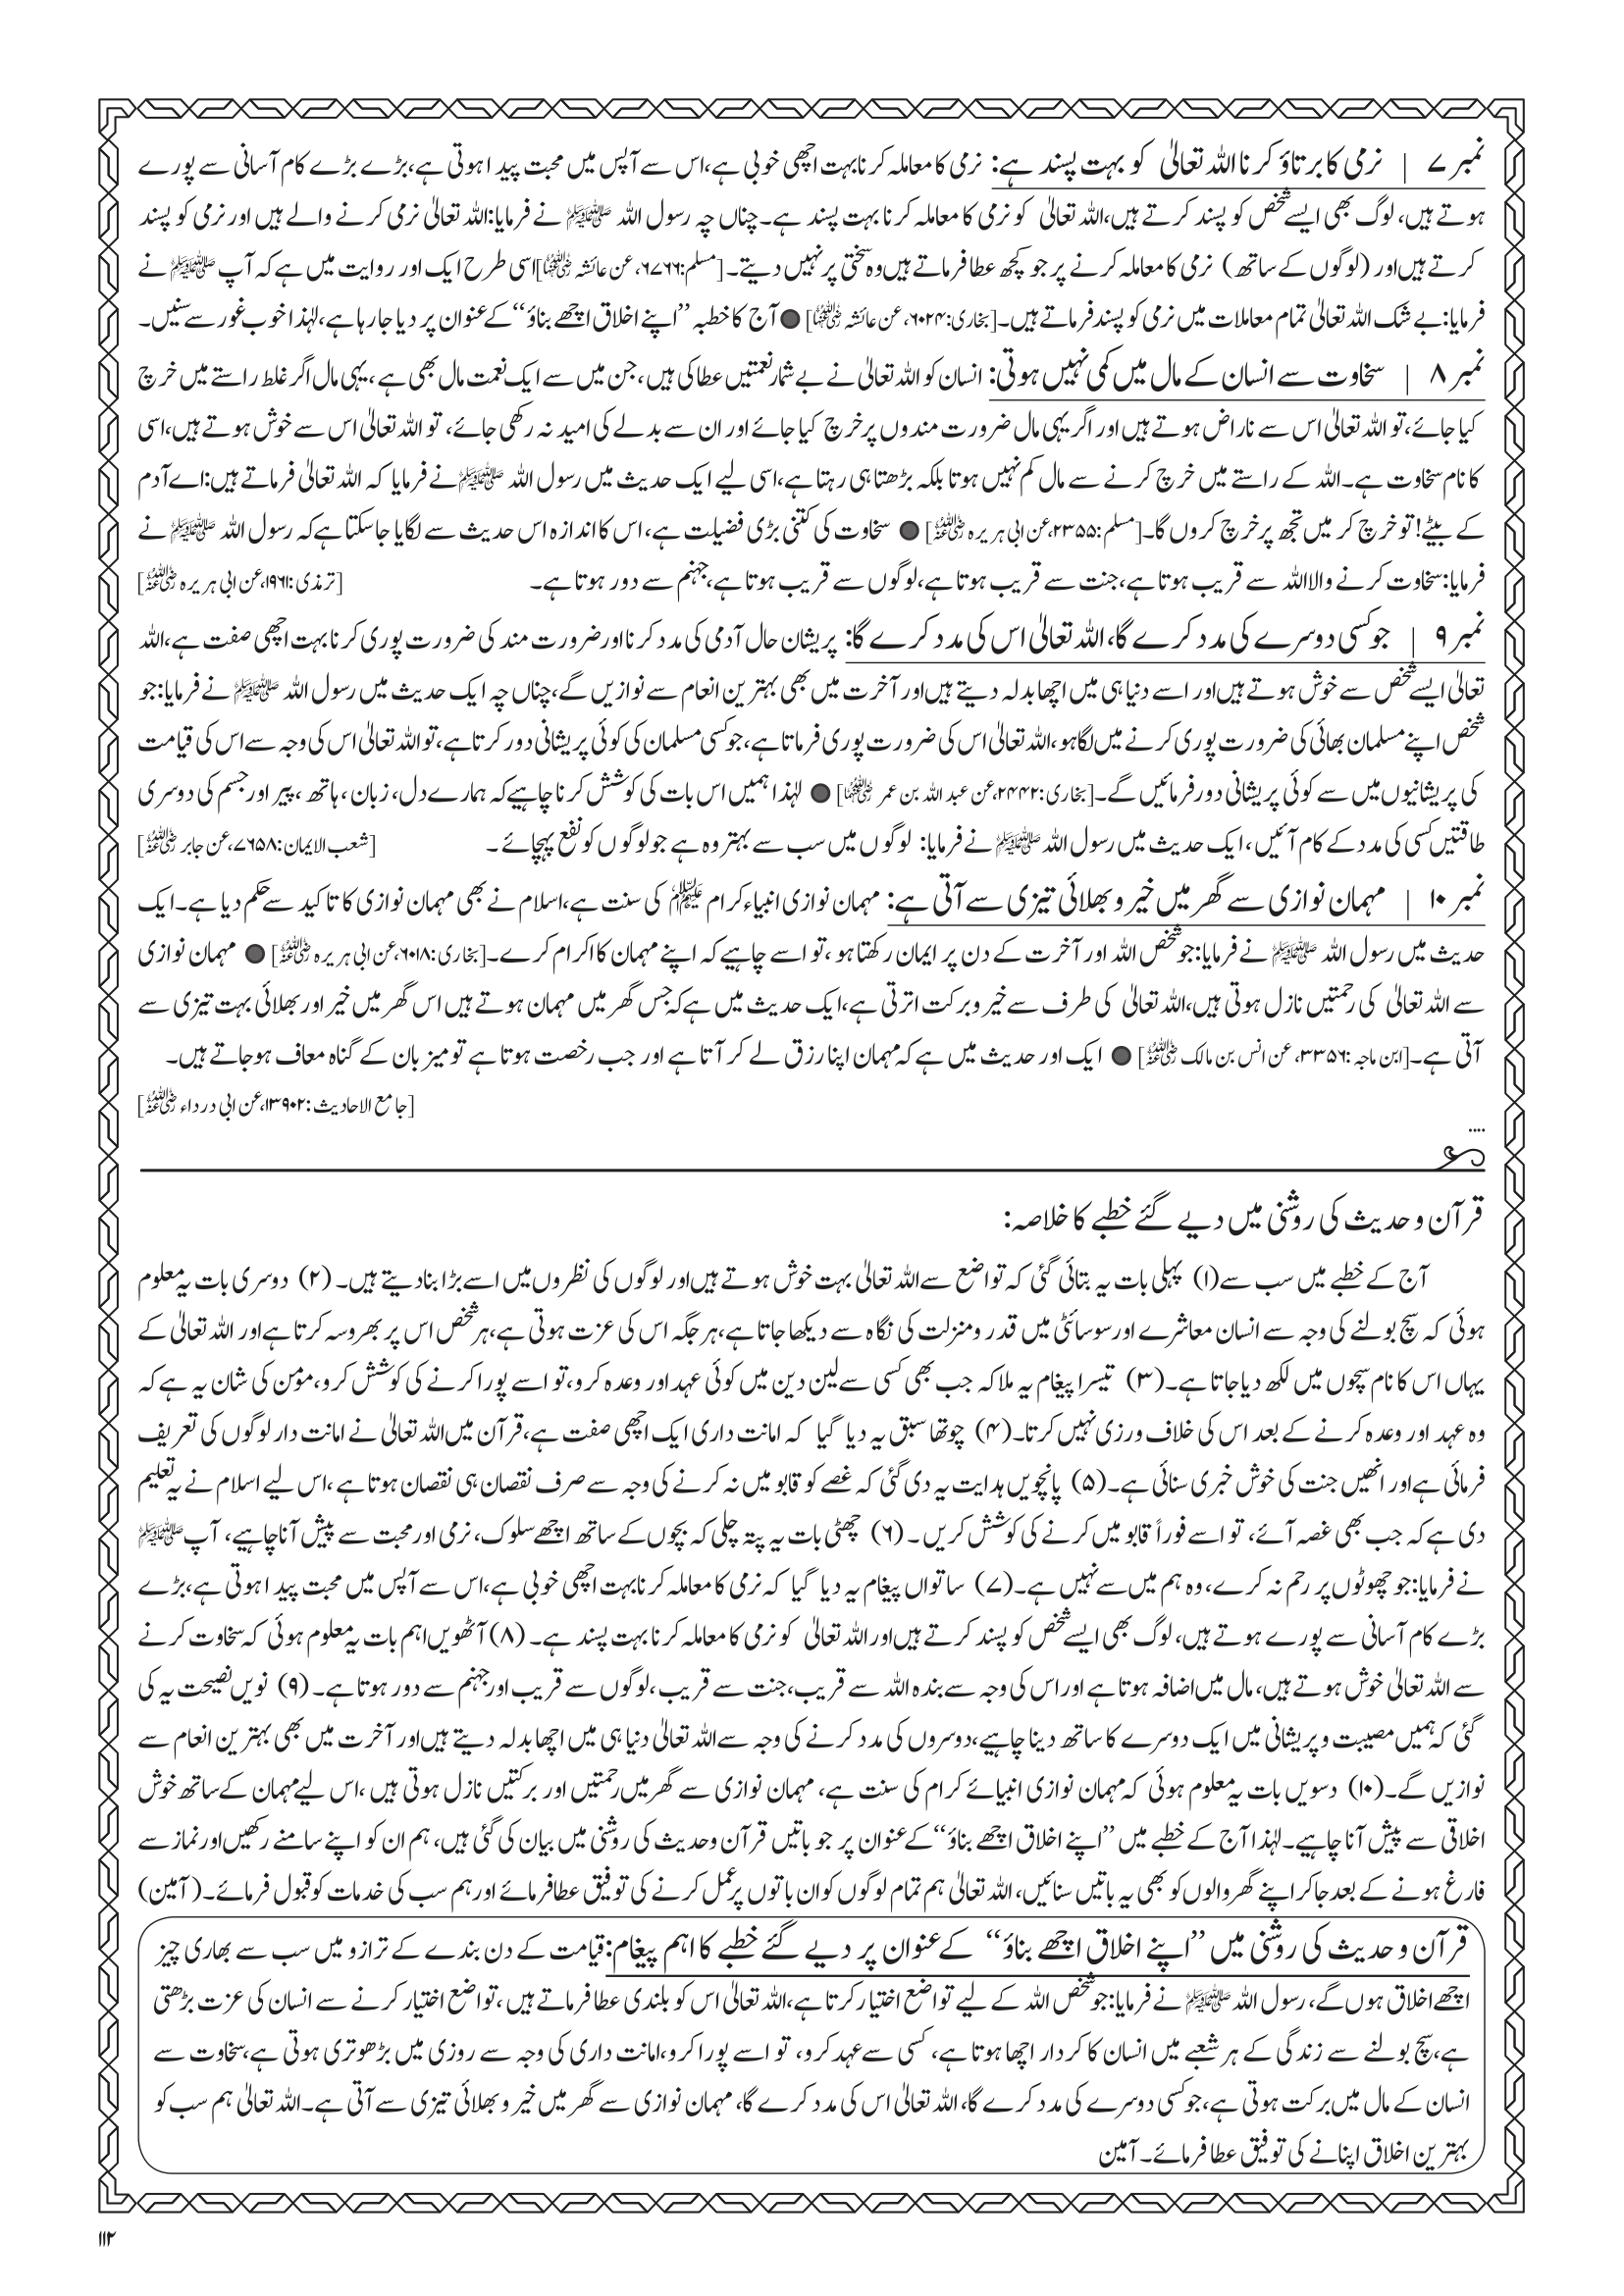 نمبر ۷ | نرمی کا برتاؤ کرنا اللہ تعالیٰ کو بہت پسند ہے: نرمی کا معاملہ کرنا بہت اچھی خوبی ہے، اس سے آپس میں محبت پیدا ہوتی ہے، بڑے بڑے کام آسانی سے پورے
ہوتے ہیں، لوگ بھی ایسے شخص کو پسند کرتے ہیں، اللہ تعالیٰ کو نرمی کا معاملہ کرنا بہت پسند ہے۔ چناں چہ رسول اللہ ﷺ نے فرمایا: اللہ تعالیٰ نرمی کرنے والے ہیں اور نرمی کو پسند
کرتے ہیں اور (لوگوں کے ساتھ) نرمی کا معاملہ کرنے پر جو کچھ عطا فرماتے ہیں وہ سختی پر نہیں دیتے۔ [مسلم: ۶۷۶۶، عن عائشہ رضی اللہ عنہا] اسی طرح ایک اور روایت میں ہے کہ آپ ﷺ نے
فرمایا: بے شک اللہ تعالیٰ تمام معاملات میں نرمی کو پسند فرماتے ہیں۔ [بخاری: ۶۰۲۴، عن عائشہ رضی اللہ عنہا] ● آج کا خطبہ ”اپنے اخلاق اچھے بناؤ“ کے عنوان پر دیا جا رہا ہے، لہٰذا خوب غور سے سنیں۔
نمبر ۸ | سخاوت سے انسان کے مال میں کمی نہیں ہوتی: انسان کو اللہ تعالیٰ نے بے شمار نعمتیں عطا کی ہیں، جن میں سے ایک نعمت مال بھی ہے، یہی مال اگر غلط راستے میں خرچ
کیا جائے، تو اللہ تعالیٰ اس سے ناراض ہوتے ہیں اور اگر یہی مال ضرورت مندوں پر خرچ کیا جائے اور ان سے بدلے کی امید نہ رکھی جائے، تو اللہ تعالیٰ اس سے خوش ہوتے ہیں، اسی
کا نام سخاوت ہے۔ اللہ کے راستے میں خرچ کرنے سے مال کم نہیں ہوتا بلکہ بڑھتا ہی رہتا ہے، اسی لیے ایک حدیث میں رسول اللہ ﷺ نے فرمایا کہ اللہ تعالیٰ فرماتے ہیں: اے آدم
کے بیٹے! تو خرچ کر میں تجھ پر خرچ کروں گا۔ [مسلم: ۲۳۵۵، عن ابی ہریرہ رضی اللہ عنہ] ● سخاوت کی کتنی بڑی فضیلت ہے، اس کا اندازہ اس حدیث سے لگایا جا سکتا ہے کہ رسول اللہ ﷺ نے
فرمایا: سخاوت کرنے والا اللہ سے قریب ہوتا ہے، جنت سے قریب ہوتا ہے، لوگوں سے قریب ہوتا ہے، جہنم سے دور ہوتا ہے۔ [ترمذی: ۱۹۶۱، عن ابی ہریرہ رضی اللہ عنہ]
نمبر ۹ | جو کسی دوسرے کی مدد کرے گا، اللہ تعالیٰ اس کی مدد کرے گا: پریشان حال آدمی کی مدد کرنا اور ضرورت مند کی ضرورت پوری کرنا بہت اچھی صفت ہے، اللہ
تعالیٰ ایسے شخص سے خوش ہوتے ہیں اور اسے دنیا ہی میں اچھا بدلہ دیتے ہیں اور آخرت میں بھی بہترین انعام سے نوازیں گے، چناں چہ ایک حدیث میں رسول اللہ ﷺ نے فرمایا: جو
شخص اپنے مسلمان بھائی کی ضرورت پوری کرنے میں لگا ہو، اللہ تعالیٰ اس کی ضرورت پوری فرماتا ہے، جو کسی مسلمان کی کوئی پریشانی دور کرتا ہے، تو اللہ تعالیٰ اس کی وجہ سے اس کی قیامت
کی پریشانیوں میں سے کوئی پریشانی دور فرمائیں گے۔ [بخاری: ۲۴۴۲، عن عبد اللہ بن عمر رضی اللہ عنہا] ● لہٰذا ہمیں اس بات کی کوشش کرنا چاہیے کہ ہمارے دل، زبان، ہاتھ، پیر اور جسم کی دوسری
طاقتیں کسی کی مدد کے کام آئیں، ایک حدیث میں رسول اللہ ﷺ نے فرمایا: لوگوں میں سب سے بہتر وہ ہے جو لوگوں کو نفع پہچائے۔ [شعب الایمان: ۷۶۵۸، عن جابر رضی اللہ عنہ]
نمبر ۱۰ | مہمان نوازی سے گھر میں خیر و بھلائی تیزی سے آتی ہے: مہمان نوازی انبیاء کرام علیہم السلام کی سنت ہے، اسلام نے بھی مہمان نوازی کا تاکید سے حکم دیا ہے۔ ایک
حدیث میں رسول اللہ ﷺ نے فرمایا: جو شخص اللہ اور آخرت کے دن پر ایمان رکھتا ہو، تو اسے چاہیے کہ اپنے مہمان کا اکرام کرے۔ [بخاری: ۶۰۱۸، عن ابی ہریرہ رضی اللہ عنہ] ● مہمان نوازی
سے اللہ تعالیٰ کی رحمتیں نازل ہوتی ہیں، اللہ تعالیٰ کی طرف سے خیر و برکت اترتی ہے، ایک حدیث میں ہے کہ جس گھر میں مہمان ہوتے ہیں اس گھر میں خیر اور بھلائی بہت تیزی سے
آتی ہے۔ [ابن ماجہ: ۳۳۵۶، عن انس بن مالک رضی اللہ عنہ] ● ایک اور حدیث میں ہے کہ مہمان اپنا رزق لے کر آتا ہے اور جب رخصت ہوتا ہے تو میزبان کے گناہ معاف ہو جاتے ہیں۔
[جامع الاحادیث: ۱۳۹۰۲، عن ابی درداء رضی اللہ عنہ]
قرآن و حدیث کی روشنی میں دیے گئے خطبے کا خلاصہ:
آج کے خطبے میں سب سے (۱) پہلی بات یہ بتائی گئی کہ تواضع سے اللہ تعالیٰ بہت خوش ہوتے ہیں اور لوگوں کی نظروں میں اسے بڑا بنا دیتے ہیں۔ (۲) دوسری بات یہ معلوم
ہوئی کہ سچ بولنے کی وجہ سے انسان معاشرے اور سوسائٹی میں قدر و منزلت کی نگاہ سے دیکھا جاتا ہے، ہر جگہ اس کی عزت ہوتی ہے، ہر شخص اس پر بھروسہ کرتا ہے اور اللہ تعالیٰ کے
یہاں اس کا نام سچوں میں لکھ دیا جاتا ہے۔ (۳) تیسرا پیغام یہ ملا کہ جب بھی کسی سے لین دین میں کوئی عہد اور وعدہ کرو، تو اسے پورا کرنے کی کوشش کرو، مؤمن کی شان یہ ہے کہ
وہ عہد اور وعدہ کرنے کے بعد اس کی خلاف ورزی نہیں کرتا۔ (۴) چوتھا سبق یہ دیا گیا کہ امانت داری ایک اچھی صفت ہے، قرآن میں اللہ تعالیٰ نے امانت دار لوگوں کی تعریف
فرمائی ہے اور انھیں جنت کی خوش خبری سنائی ہے۔ (۵) پانچویں ہدایت یہ دی گئی کہ غصے کو قابو میں نہ کرنے کی وجہ سے صرف نقصان ہی نقصان ہوتا ہے، اس لیے اسلام نے یہ تعلیم
دی ہے کہ جب بھی غصہ آئے، تو اسے فوراً قابو میں کرنے کی کوشش کریں۔ (۶) چھٹی بات یہ پتہ چلی کہ بچوں کے ساتھ اچھے سلوک، نرمی اور محبت سے پیش آنا چاہیے، آپ ﷺ
نے فرمایا: جو چھوٹوں پر رحم نہ کرے، وہ ہم میں سے نہیں ہے۔ (۷) ساتواں پیغام یہ دیا گیا کہ نرمی کا معاملہ کرنا بہت اچھی خوبی ہے، اس سے آپس میں محبت پیدا ہوتی ہے، بڑے
بڑے کام آسانی سے پورے ہوتے ہیں، لوگ بھی ایسے شخص کو پسند کرتے ہیں اور اللہ تعالیٰ کو نرمی کا معاملہ کرنا بہت پسند ہے۔ (۸) آٹھویں اہم بات یہ معلوم ہوئی کہ سخاوت کرنے
سے اللہ تعالیٰ خوش ہوتے ہیں، مال میں اضافہ ہوتا ہے اور اس کی وجہ سے بندہ اللہ سے قریب، جنت سے قریب، لوگوں سے قریب اور جہنم سے دور ہوتا ہے۔ (۹) نویں نصیحت یہ کی
گئی کہ ہمیں مصیبت و پریشانی میں ایک دوسرے کا ساتھ دینا چاہیے، دوسروں کی مدد کرنے کی وجہ سے اللہ تعالیٰ دنیا ہی میں اچھا بدلہ دیتے ہیں اور آخرت میں بھی بہترین انعام سے
نوازیں گے۔ (۱۰) دسویں بات یہ معلوم ہوئی کہ مہمان نوازی انبیائے کرام کی سنت ہے، مہمان نوازی سے گھر میں رحمتیں اور برکتیں نازل ہوتی ہیں، اس لیے مہمان کے ساتھ خوش
اخلاقی سے پیش آنا چاہیے۔ لہٰذا آج کے خطبے میں ”اپنے اخلاق اچھے بناؤ“ کے عنوان پر جو باتیں قرآن وحدیث کی روشنی میں بیان کی گئی ہیں، ہم ان کو اپنے سامنے رکھیں اور نماز سے
فارغ ہونے کے بعد جا کر اپنے گھر والوں کو بھی یہ باتیں سنائیں، اللہ تعالیٰ ہم تمام لوگوں کو ان باتوں پر عمل کرنے کی توفیق عطا فرمائے اور ہم سب کی خدمات کو قبول فرمائے۔ (آمین)
قرآن و حدیث کی روشنی میں ”اپنے اخلاق اچھے بناؤ“ کے عنوان پر دیے گئے خطبے کا اہم پیغام: قیامت کے دن بندے کے ترازو میں سب سے بھاری چیز
اچھے اخلاق ہوں گے، رسول اللہ ﷺ نے فرمایا: جو شخص اللہ کے لیے تواضع اختیار کرتا ہے، اللہ تعالیٰ اس کو بلندی عطا فرماتے ہیں، تواضع اختیار کرنے سے انسان کی عزت بڑھتی
ہے، سچ بولنے سے زندگی کے ہر شعبے میں انسان کا کردار اچھا ہوتا ہے، کسی سے عہد کرو، تو اسے پورا کرو، امانت داری کی وجہ سے روزی میں بڑھوتری ہوتی ہے، سخاوت سے
انسان کے مال میں برکت ہوتی ہے، جو کسی دوسرے کی مدد کرے گا، اللہ تعالیٰ اس کی مدد کرے گا، مہمان نوازی سے گھر میں خیر و بھلائی تیزی سے آتی ہے۔ اللہ تعالیٰ ہم سب کو
بہترین اخلاق اپنانے کی توفیق عطا فرمائے۔ آمین
۱۱۲